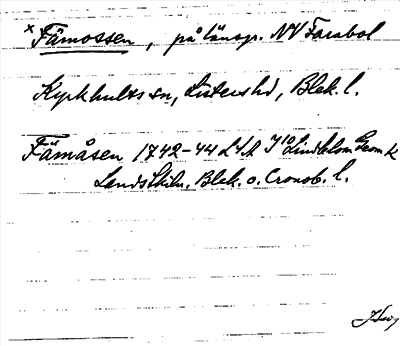 x Fämossen, på länsgr. NV Farabol
Kyrkhults sn, Listers hd, Blek. l.
Fämåsen 1742-44 LSA J 10 Lindblom Geom. k
Landsskiln. Blek. o. Cronob. l.